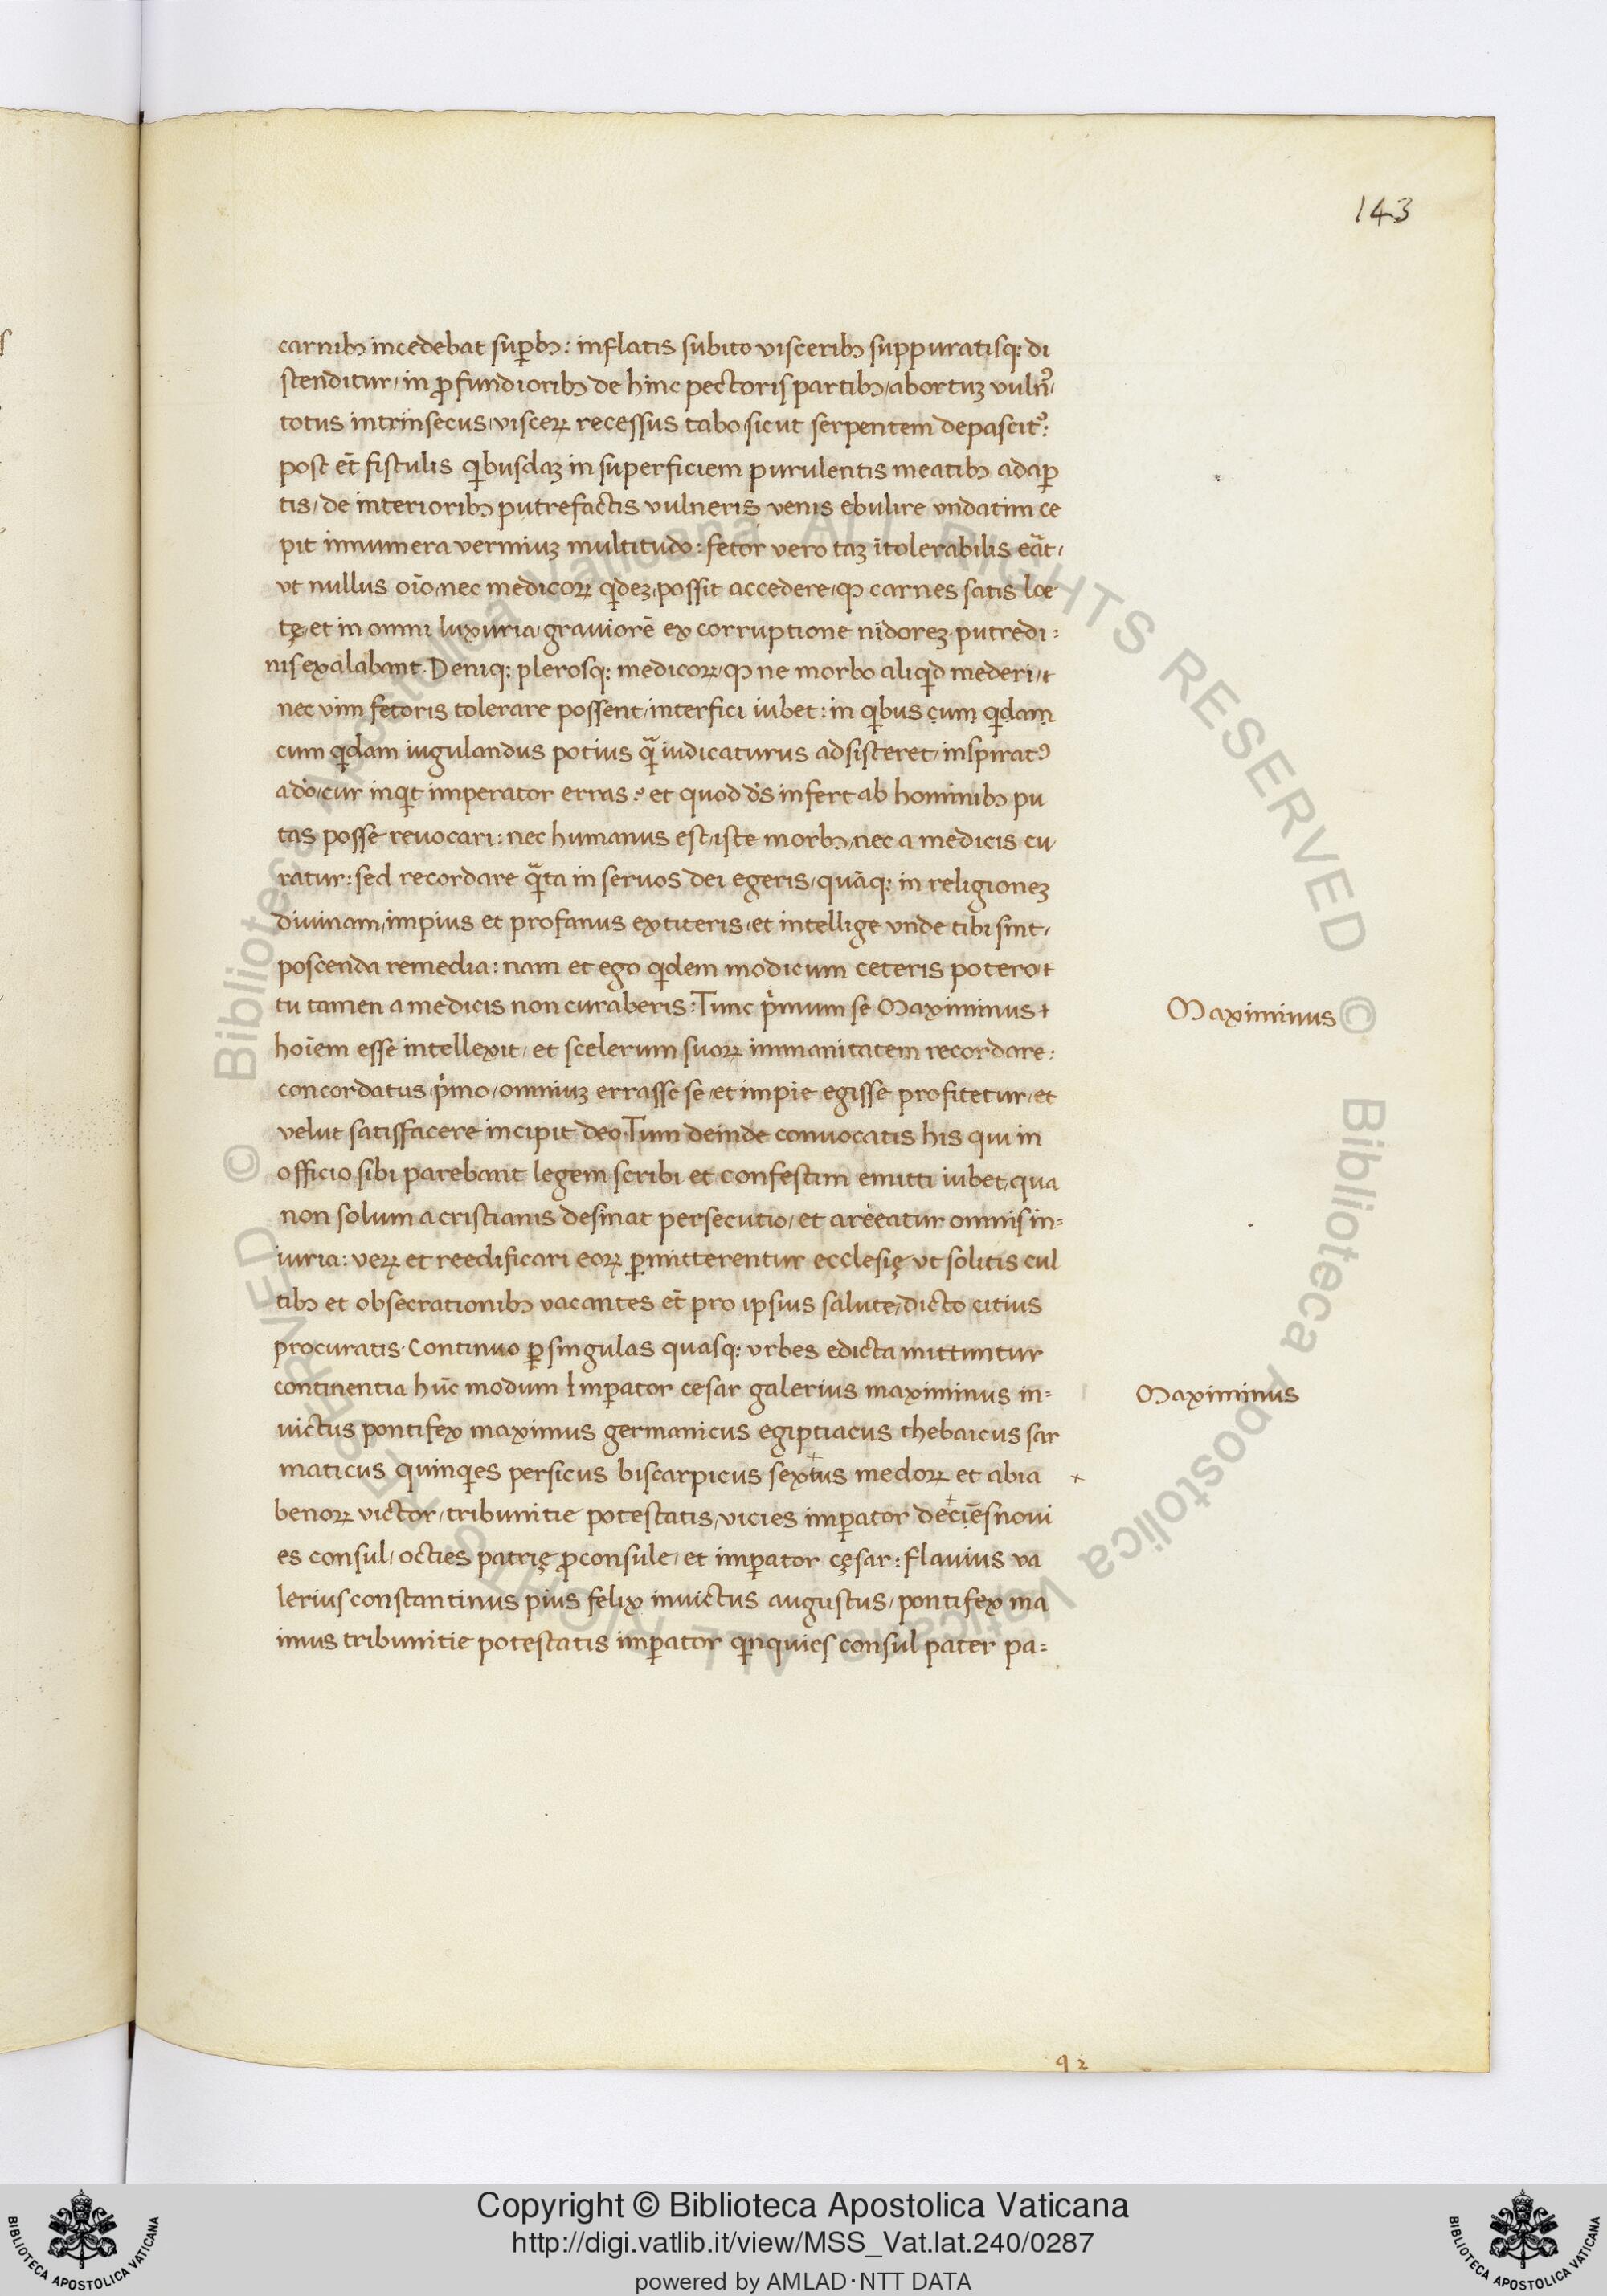 143
carnibꝫ incedebat suꝑbꝫ: inflatis subito visceribꝫ suppuratisq: di
stenditur, in ꝓfundioribꝫ de hinc pectoris partibꝫ, abortuz vuln᷒
totus intrinsecus, visceꝝ recessus tabo, sicut serpentem depascit᷒:
post et̄ fistulis qͥbusdaz in superficiem purulentis meatibꝫ adaꝑ
tis, de interioribꝫ putrefactis vulneris venis ebulire vndatim ce
pit innumera vermiuz multitudo: fetor vero taz ītolerabilis eāt,
vt nullus oīo, nec medicoꝝ qͥdez, possit accedere, ꝙ carnes satis loe
tę, et in omni luxuria, graviorē ex corruptione nidorez, putredi:
nis exalabant. Deniq: plerosq: medicoꝝ, ꝙ ne morbo aliqͥd mederi, t
nec vim fetoris tolerare possent, interfici iubet: in qͥbus cum qͥdam
cum qͥdam iugulandus potius qᷓ iudicaturus adsisteret, inspiratꝰ
a do̅, cur inqͥt imperator erras? et quod d̅s infert ab hominibꝫ pu
tas posse revocari: nec humanus est, iste morbꝫ, nec a medicis cu
ratur: sed recordare qᷓta in servos dei egeris, quāq: in religionez
divinam, impius et profanus extiteris, et intellige vnde tibi sint,
poscenda remedia: nam et ego qͥdem modicum ceteris potero, t
tu tamen a medicis non curaberis: Tunc pͥmum se Maximinus t
Maximinus
hoīem esse intellexit, et scelerum suoꝝ immanitatem recordare:
concordatus pͥmo, omniuz errasse se, et impie egisse profitetur, et
velut satisfacere incipit deo. Tum deinde convocatis his qui in
officio sibi parebant legem scribi et confestim emitti iubet, qua
non solum a cristianis desinat persecutio, et arceatur omnis in=
iuria: veꝝ et reedificari eoꝝ ꝑmitterentur ecclesię vt solitis cul
tibꝫ et obsecrationibꝫ vacantes et̄ pro ipsius salute, dicto citius
procuratis. Continuo ꝑ singulas quasq: vrbes edicta mittuntur
continentia hūc modum Imꝑator cesar galerius maximinus in=
Maximinus
victus pontifex maximus germanicus egiptiacus thebaicus sar
maticus quinqͥes persicus biscarpicus sextus medoꝝ et abia +
benoꝝ victor, tribunitie potestatis, vicies imꝑator deciēs novi
es consul, octies patrię ꝓconsule, et imꝑator cęsar: flavius va
lerius constantinus pius felix invictus augustus, pontifex ma
imus tribunitie potestatis imꝑator qͥnquies consul pater pa=
q 2
© Biblioteca Apostolica Vaticana ALL RIGHTS RESERVED
© Biblioteca Apostolica Vaticana ALL RIGHTS RESERVED
Copyright © Biblioteca Apostolica Vaticana
http://digi.vatlib.it/view/MSS_Vat.lat.240/0287
powered by AMLAD·NTT DATA
BIBLIOTECA APOSTOLICA VATICANA
BIBLIOTECA APOSTOLICA VATICANA